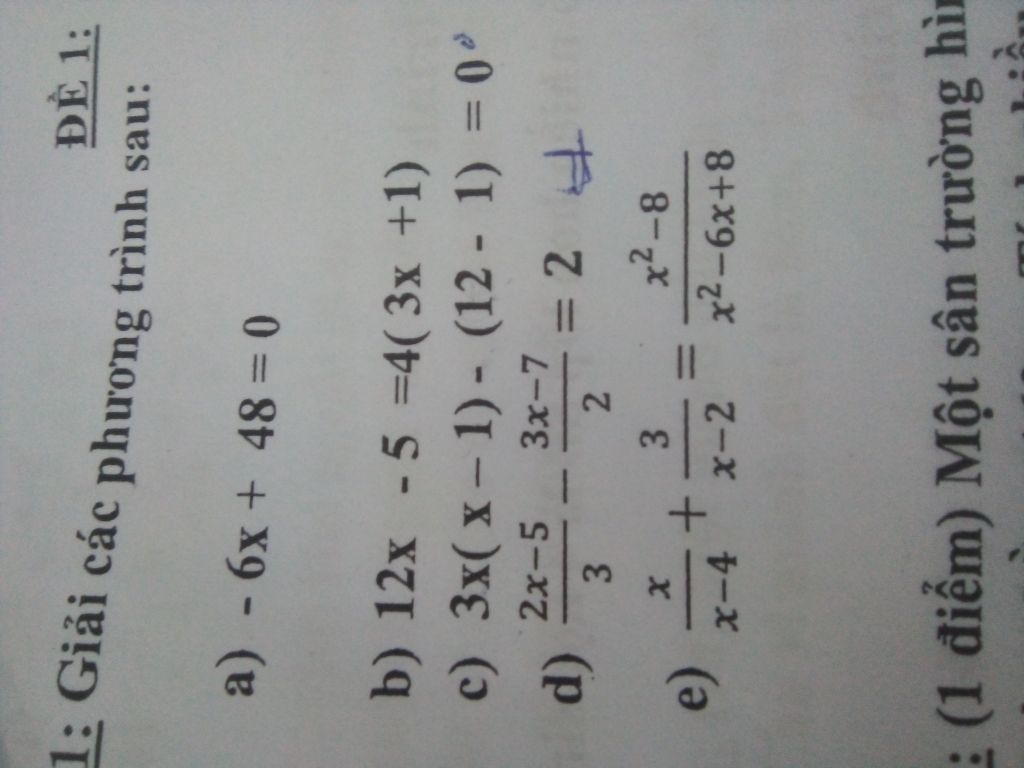 ĐỀ 1:
1: Giải các phương trình sau:
a) - 6x + 48 = 0
b) 12x - 5 =4( 3x +1)
c) 3x( x – 1) - (12 - 1) = 0
d) \frac{2x-5}{3} − \frac{3x-7}{2} = 2
e) \frac{x}{x-4} + \frac{3}{x-2} = \frac{x²-8}{x²-6x+8}
: (1 điểm) Một sân trường hìn